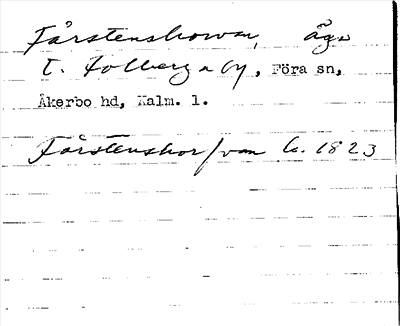 Fårstenshorvan, äga
t. Folberga by, Föra sn,
Åkerbo hd, Kalm. l.
Fårstenshor/van Ca. 1823